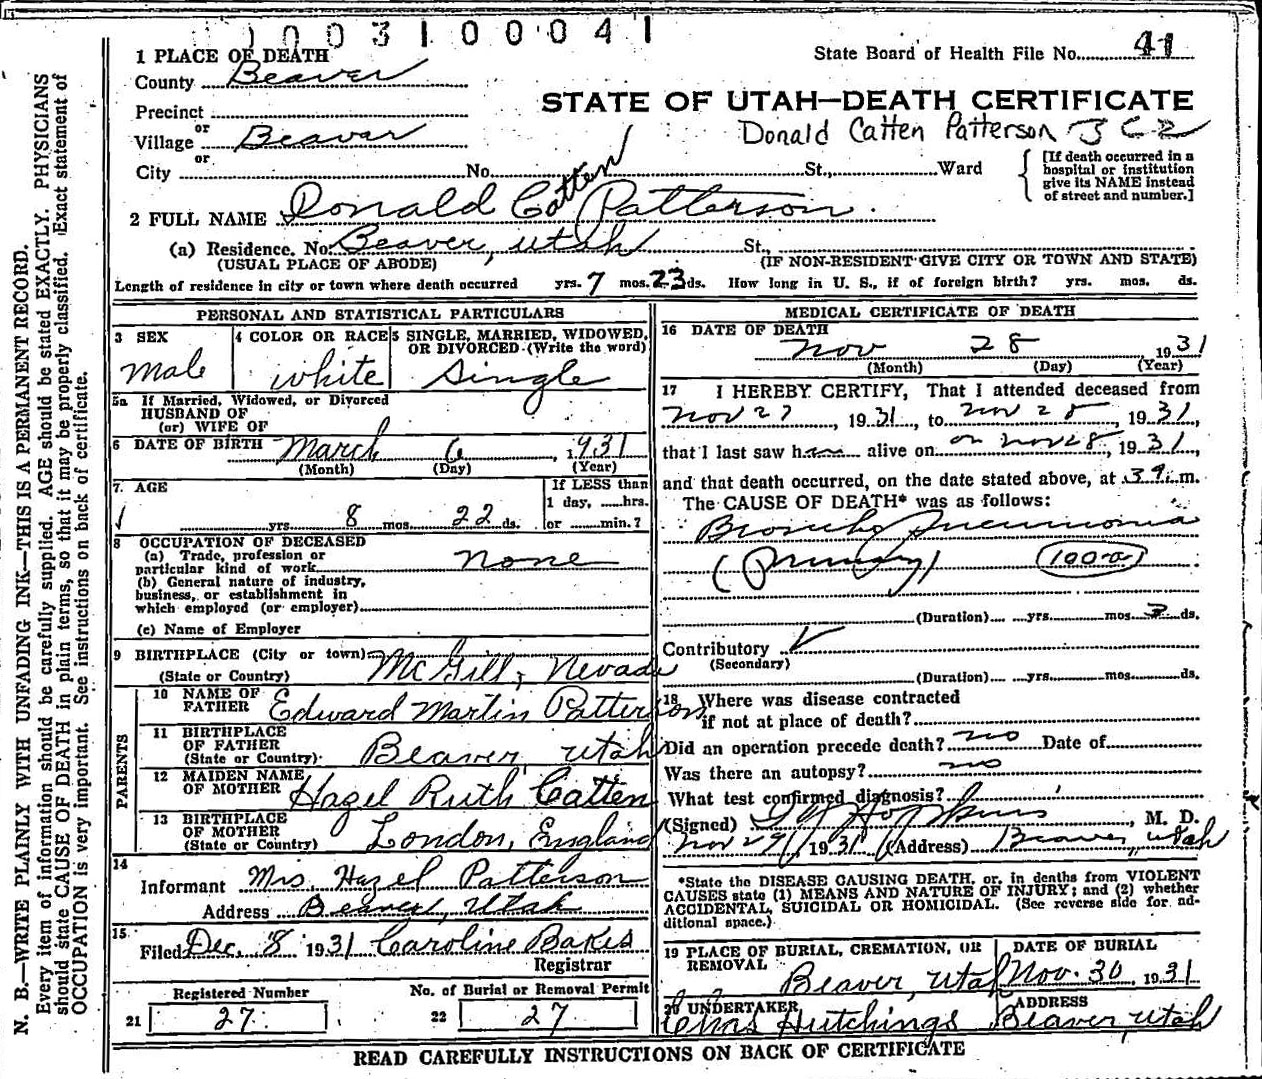 1003100041
1 PLACE OF DEATH
State Board of Health File No. 41
County Beaver
STATE OF UTAH—DEATH CERTIFICATE
Precinct
or
Village Beaver
Donald Catten Patterson
or
City No. St., Ward
[If death occurred in a hospital or institution give its NAME instead of street and number.]
2 FULL NAME Donald Catten Patterson
(a) Residence. No. Beaver, Utah St.,
(USUAL PLACE OF ABODE) (IF NON-RESIDENT GIVE CITY OR TOWN AND STATE)
Length of residence in city or town where death occurred yrs. 7 mos. 23 ds. How long in U. S., if of foreign birth? yrs. mos. ds.
PERSONAL AND STATISTICAL PARTICULARS
3 SEX
Male
4 COLOR OR RACE
white
5 SINGLE, MARRIED, WIDOWED,
OR DIVORCED (Write the word)
Single
5a If Married, Widowed, or Divorced
HUSBAND OF
(or) WIFE OF
6 DATE OF BIRTH March 6, 1931
(Month) (Day) (Year)
7. AGE
yrs. 8 mos. 22 ds.
If LESS than
1 day, hrs.
or min.?
8 OCCUPATION OF DECEASED
(a) Trade, profession or
particular kind of work none
(b) General nature of industry,
business, or establishment in
which employed (or employer)
(c) Name of Employer
9 BIRTHPLACE (City or town) McGill, Nevada
(State or Country)
PARENTS
10 NAME OF
FATHER Edward Martin Patterson
11 BIRTHPLACE
OF FATHER
(State or Country) Beaver, Utah
12 MAIDEN NAME
OF MOTHER Hazel Ruth Catten
13 BIRTHPLACE
OF MOTHER
(State or Country) London, England
14
Informant Mrs. Hazel Patterson
Address Beaver, Utah
15
Filed Dec. 8 1931 Caroline Bakes
Registrar
Registered Number
21 27
No. of Burial or Removal Permit
22 27
MEDICAL CERTIFICATE OF DEATH
16 DATE OF DEATH
Nov 28 1931
(Month) (Day) (Year)
17 I HEREBY CERTIFY, That I attended deceased from
Nov 27, 1931, to Nov 28, 1931,
that I last saw h alive on on Nov 28, 1931,
and that death occurred, on the date stated above, at m.
The CAUSE OF DEATH* was as follows:
Broncho Pneumonia
(Primary)
(Duration) yrs. mos. ds.
Contributory
(Secondary)
(Duration) yrs. mos. ds.
18 Where was disease contracted
if not at place of death?
Did an operation precede death? no Date of
Was there an autopsy? no
What test confirmed diagnosis?
(Signed) Hopkins, M. D.
Nov 29, 1931 (Address) Beaver, Utah
*State the DISEASE CAUSING DEATH, or, in deaths from VIOLENT
CAUSES state (1) MEANS AND NATURE OF INJURY; and (2) whether
ACCIDENTAL, SUICIDAL OR HOMICIDAL. (See reverse side for ad-
ditional space.)
19 PLACE OF BURIAL, CREMATION, OR
REMOVAL
Beaver, Utah
DATE OF BURIAL
Nov. 30, 1931
20 UNDERTAKER
Chas Hutchings
ADDRESS
Beaver, Utah
READ CAREFULLY INSTRUCTIONS ON BACK OF CERTIFICATE
N. B.—WRITE PLAINLY WITH UNFADING INK—THIS IS A PERMANENT RECORD.
Every item of information should be carefully supplied. AGE should be stated EXACTLY. PHYSICIANS
should state CAUSE OF DEATH in plain terms, so that it may be properly classified. Exact statement of
OCCUPATION is very important. See instructions on back of certificate.